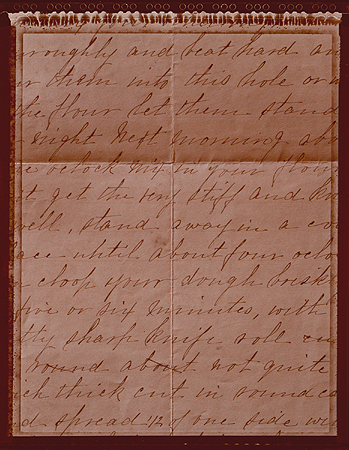 roughly and beat hard an
them into this hole or
the flour let them stand
night next morning abo
oclock mix in your flour
get the very stiff and
well, stand away in a co
ace until about four oclo
chop your dough brisk
five or six minutes, with
tty sharp knife roll
round about not quite
ch thick cut in round ca
d spread 1/2 of one side wi